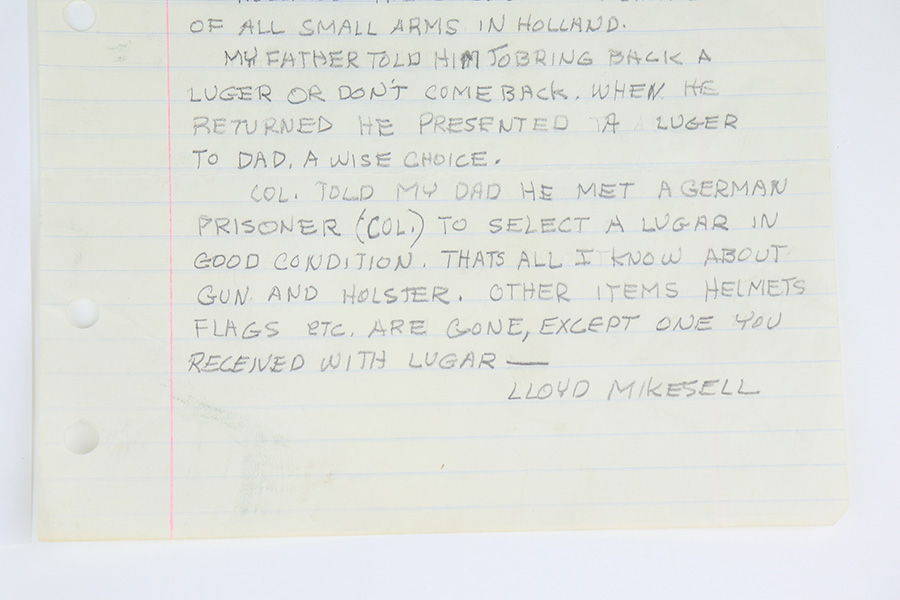 OF ALL SMALL ARMS IN HOLLAND.
MY FATHER TOLD HIM TO BRING BACK A
LUGER OR DON'T COME BACK. WHEN HE
RETURNED HE PRESENTED A LUGER
TO DAD, A WISE CHOICE.
COL. TOLD MY DAD HE MET A GERMAN
PRISONER (COL.) TO SELECT A LUGAR IN
GOOD CONDITION. THATS ALL I KNOW ABOUT
GUN AND HOLSTER. OTHER ITEMS HELMETS
FLAGS ETC. ARE GONE, EXCEPT ONE YOU
RECEIVED WITH LUGAR —
LLOYD MIKESELL